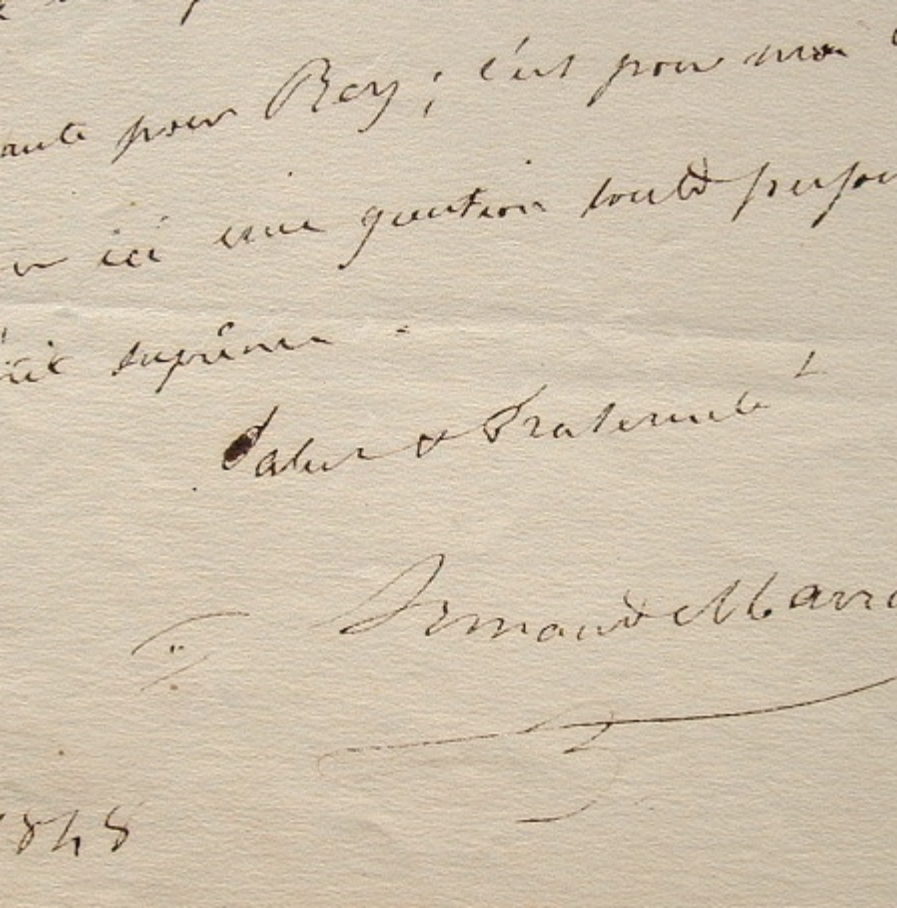 pour Rey ; c'est pour moi
ici une question toute person
suprême .
Salut & Fraternité
Armand Marra
1848